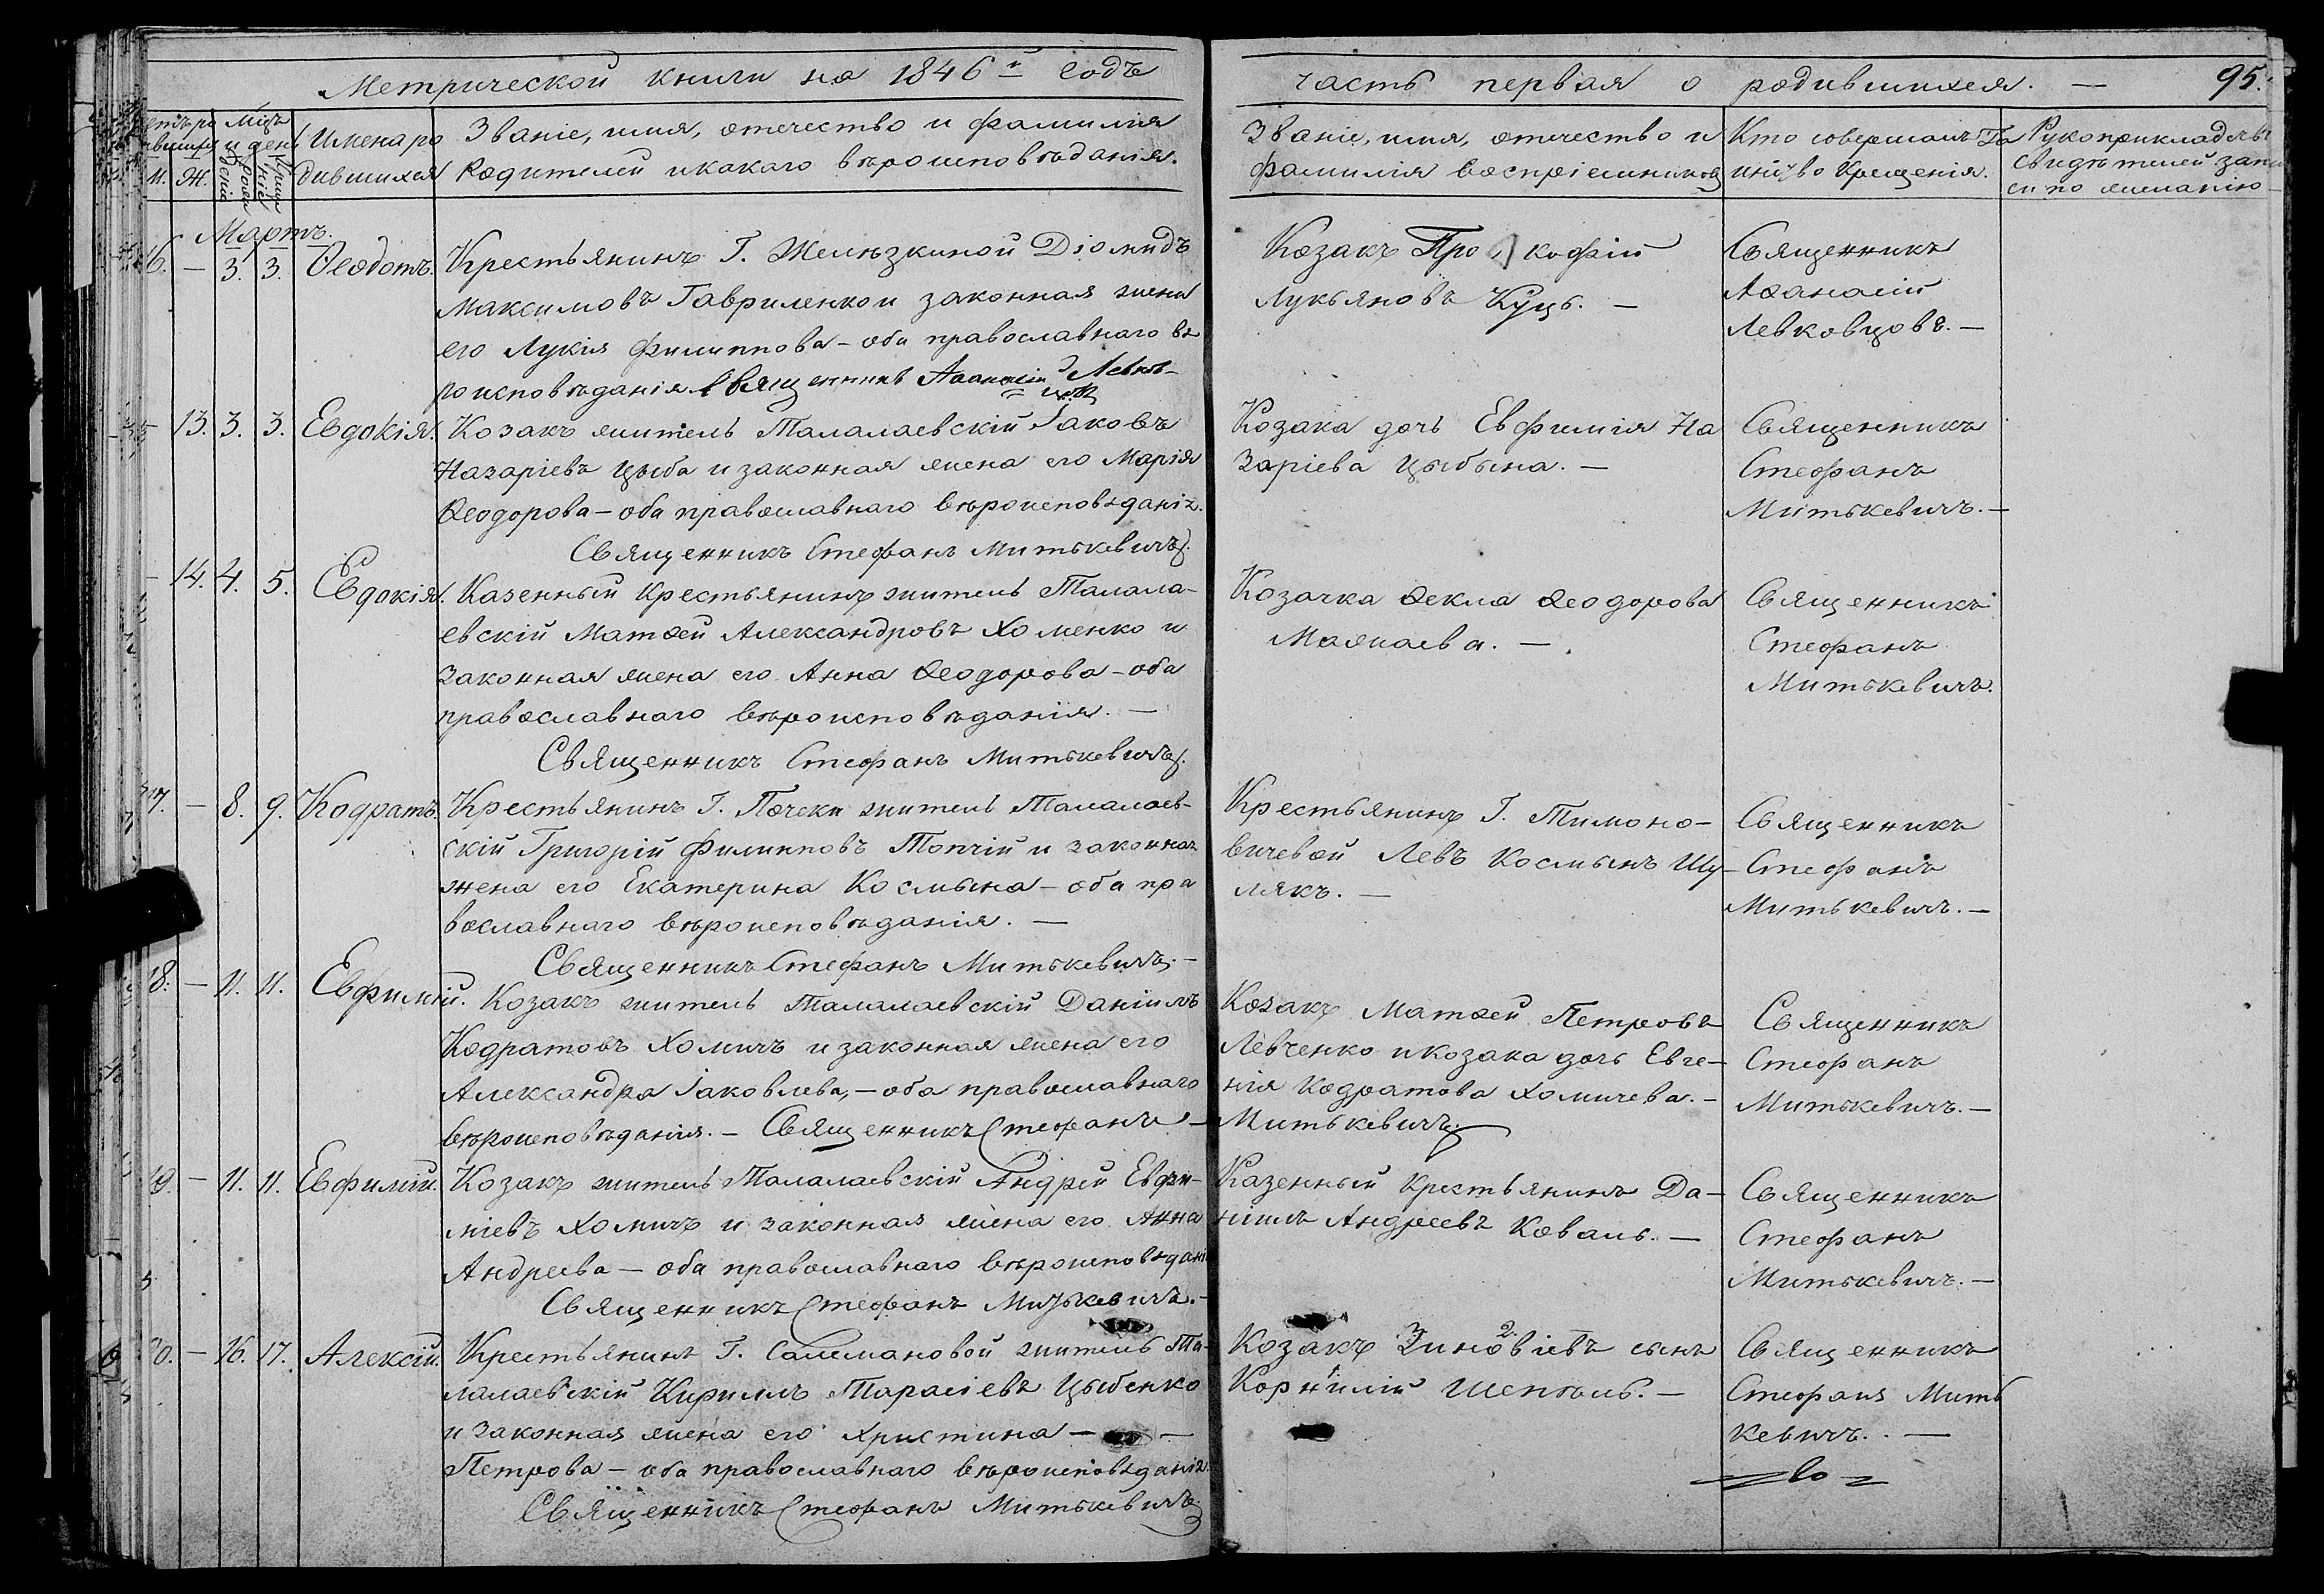 Метрической книги на 1846й годъ
часть первая о родившихся. —
95.
Мцъ и день
М. Ж.
Имена родившихся
Званіе, имя, отечество и фамилія
Родителей и какаго вѣроисповѣданія.
Званіе, имя, отечество и
фамилія воспріемниковъ
Кто совершалъ Та
инство Крещенія.
Рукоприкладств
свидѣтелей запи
си по желанію
Мартъ.
16. — 3. 3. Ѳеодотъ.
Крестьянинъ Г. Желѣзкиной Діомидъ
Максимовъ Гавриленко и законная жена
его Лукія Филиппова — оба православнаго вѣ
роисповѣданія. Священникъ Аѳанасій Левков-
цовъ
Козакъ Про кофій
Лукьяновъ Куцъ. —
Священникъ
Аѳанасій
Левковцовъ. —
— 13. 3. 3. Евдокія.
Козакъ житель Талалаевскій Іаковъ
Назаріевъ Цыба и законная жена его Марія
Ѳеодорова — оба православнаго вѣроисповѣданія.
Священникъ Стефанъ Митькевичъ.
Козака дочь Евфимія На
заріева Цыбына. —
Священникъ
Стефанъ
Митькевичъ. —
— 14. 4. 5. Евдокія.
Казенный крестьянинъ житель Талала-
евскій Матѳей Александровъ Хоменко и
законная жена его Анна Ѳеодорова — оба
православнаго вѣроисповѣданія. —
Священникъ Стефанъ Митькевичъ.
Козачка Ѳекла Ѳеодорова
Священникъ
Стефанъ
Митькевичъ.
17. — 8. 9. Кодратъ.
Крестьянинъ Г. Почеки житель Талалаев-
скій Григорій Филипповъ Топчій и законная
жена его Екатерина Космына — оба пра
вославнаго вѣроисповѣданія. —
Священникъ Стефанъ Митькевичъ. —
Крестьянинъ Г. Тимоно-
вичевой Левъ Космынъ Шу-
лякъ. —
Священникъ
Стефанъ
Митькевичъ. —
18. — 11. 11. Евфимій.
Козакъ житель Талалаевскій Даніилъ
Кодратовъ Хомичъ и законная жена его
Александра Іаковлева, — оба православнаго
вѣроисповѣданія. — Священникъ Стефанъ —
Козакъ Матѳей Петровъ
Левченко и козака дочь Евге-
нія Кодратова Хомичева. —
Митькевичъ.
Священникъ
Стефанъ
Митькевичъ. —
19. — 11. 11. Евфимій.
Козакъ житель Талалаевскій Андрей Евфи-
міевъ Хомичъ и законная жена его Анна
Андреева — оба православнаго вѣроисповѣдані
Священникъ Стефанъ Митькевичъ. —
Казенный крестьянинъ Да-
ніилъ Андреевъ Коваль. —
Священникъ
Стефанъ
Митькевичъ. —
20. — 16. 17. Алексій.
Крестьянинъ Г. Салимановой житель Та-
лалаевскій Кириллъ Тарасіевъ Цыбенко
и законная жена его Христина —
Петрова — оба православнаго вѣроисповѣданія.
Священникъ Стефанъ Митькевичъ.
Козакъ Зиновіевъ сынъ
Корнилій Шепталь. —
Священникъ
Стефанъ Мить
кевичъ. —